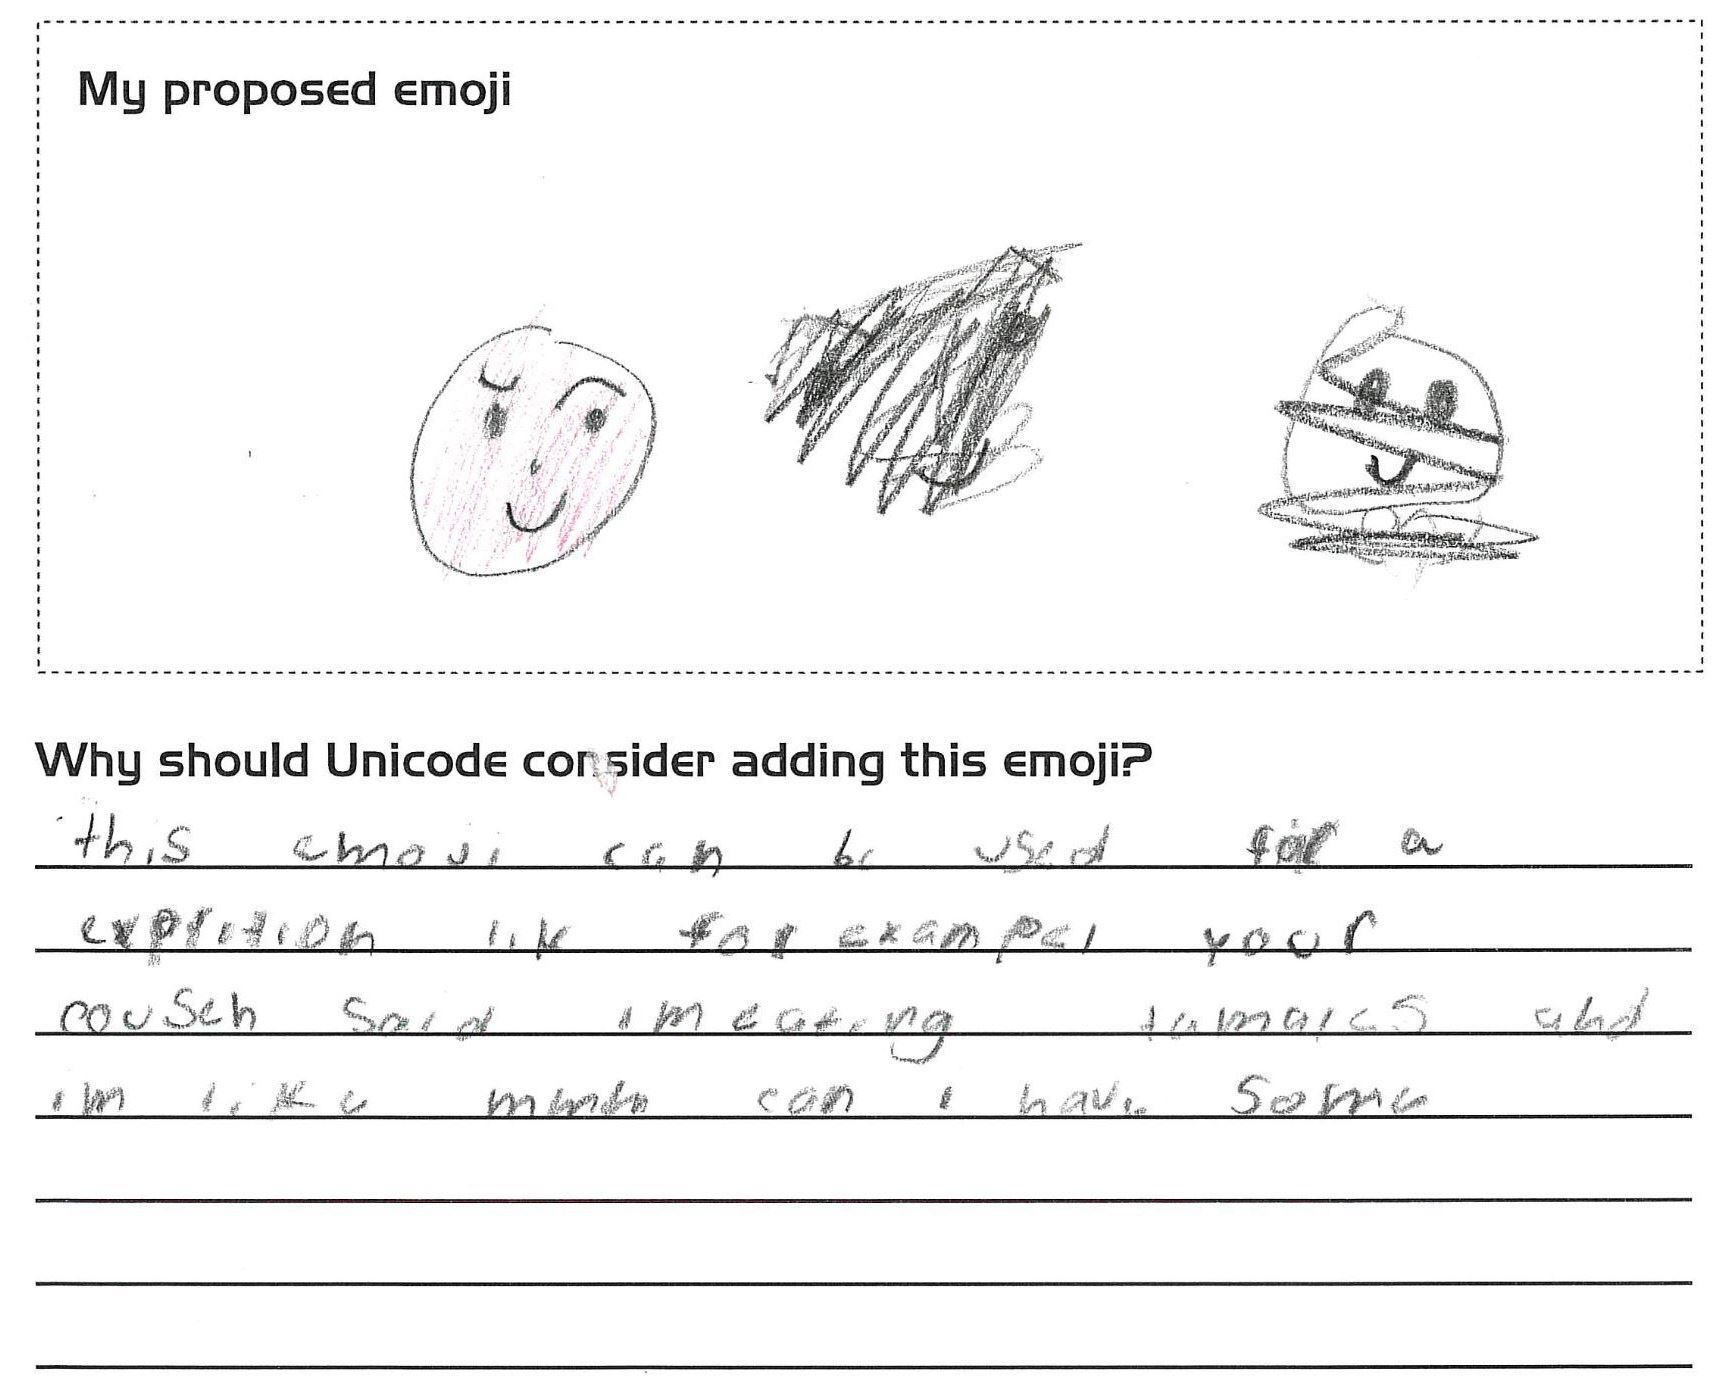 My proposed emoji
Why should Unicode consider adding this emoji?
this emoji can be used for a
exprition lik for exampel your
cousen said im eating tamales and
im like mmm can i have some